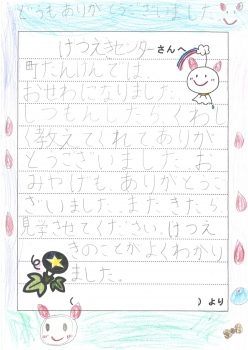 どうもありがとうございました
けつえきセンターさんへ
町たんけんでは、
おせわになりました。し
つもんしたらくわし
く教えてくれてありが
とうございました。お
みやげも、ありがとうご
ざいました。またきたら
見学させてください。けつえ
きのことがよくわかり
ました。
( )より